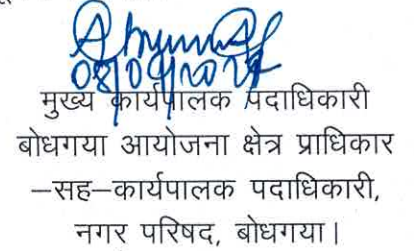 मुख्य कार्यपालक पदाधिकारी
बोधगया आयोजना क्षेत्र प्राधिकार
–सह–कार्यपालक पदाधिकारी,
नगर परिषद, बोधगया।